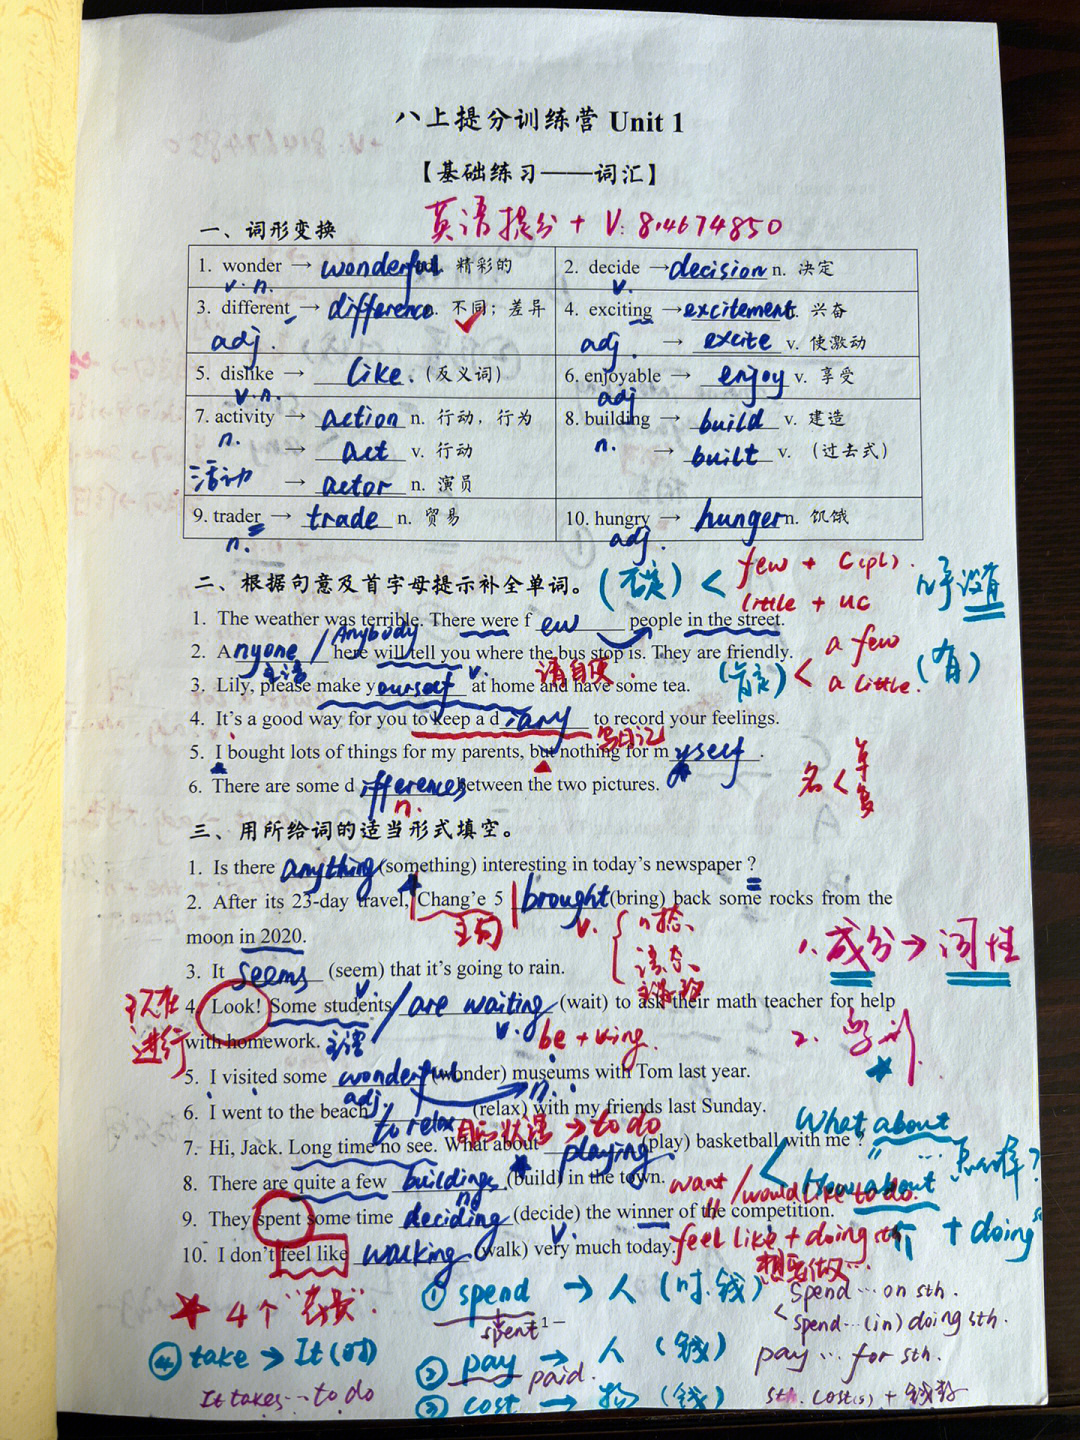 八上提分训练营 Unit 1
【基础练习——词汇】
英语提分 + V: 814674850
一、词形变换
1. wonder → wonderful 精彩的
v. n.
2. decide → decision n. 决定
v.
3. different → difference 不同；差异
adj.
4. exciting → excitement 兴奋
adj. → excite v. 使激动
5. dislike → like. (反义词)
v. n.
6. enjoyable → enjoy v. 享受
adj
7. activity → action n. 行动，行为
n. → act v. 行动
活动 → actor n. 演员
8. building → build v. 建造
n. → built v. (过去式)
9. trader → trade n. 贸易
n.
10. hungry → hunger n. 饥饿
adj.
二、根据句意及首字母提示补全单词。
(否定) < few + C(pl). 几乎没有
little + UC
1. The weather was terrible. There were few people in the street.
2. Anyone / Anybody here will tell you where the bus stop is. They are friendly.
主语 v. 请自便.
a few
(肯定) < a little. (有)
3. Lily, please make yourself at home and have some tea.
4. It's a good way for you to keep a diary to record your feelings.
写日记
5. I bought lots of things for my parents, but nothing for myself.
6. There are some differences between the two pictures.
n.
名 < 单 复
三、用所给词的适当形式填空。
1. Is there anything (something) interesting in today's newspaper ?
2. After its 23-day travel, Chang'e 5 brought (bring) back some rocks from the
主句 v. { 时态、语态、
moon in 2020.
1. 成分 → 词性
3. It seems (seem) that it's going to rain.
v.
4. Look! Some students / are waiting (wait) to ask their math teacher for help
现在进行
with homework. 主语 v. be + ving.
2.
5. I visited some wonderful (wonder) museums with Tom last year.
adj. n.
6. I went to the beach to relax (relax) with my friends last Sunday.
目的状语 → to do
7. Hi, Jack. Long time no see. What about playing (play) basketball with me ?
What about
How about … 怎么样？
+ doing
8. There are quite a few buildings (build) in the town.
want / would like to do.
9. They spent some time deciding (decide) the winner of the competition.
feel like + doing sth
想要做…
10. I don't feel like walking (walk) very much today.
★ 4个“花费”.
① spend → 人 (时.钱)
spent
Spend … on sth.
spend … (in) doing sth.
1
② pay → 人 (钱)
paid.
pay … for sth.
③ cost → 物 (钱)
sth. cost(s) + 钱数
④ take → It (时)
It takes … to do